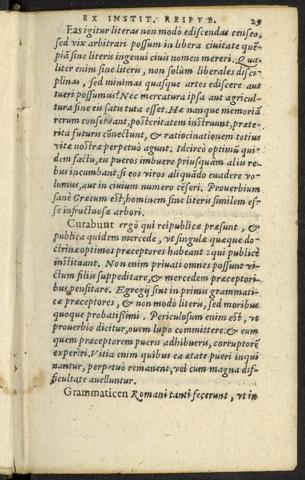 EX INSTIT. REIPVB. 29
Eas igitur literas non modò ediscendas censeo,
sed vix arbitrari possum in libera ciuitate quē-
piā sine literis ingenui ciuis nomen mereri. Qua
liter enim sine literis, non solùm liberales disci-
plinas, sed minimas quasque artes ediscere aut
tueri possumus? Nec mercatura ipsa aut agricul-
tura sine eis satis tuta esset. Hæ nanque memoriā
rerum conseruant, posteritatem instruunt, præte-
rita futuris cōnectunt, & ratiocinationem totius
vitæ nostræ perpetuò agunt. Idcircò optimū qui-
dem factu, eis pueros imbuere priusquàm aliis re-
bus incumbant, si eos viros aliquādo euadere vo-
lumus, aut in ciuium numero cēseri. Prouerbium
sanè Græcum est, hominem sine literis similem es-
se infructuosæ arbori.
Curabunt ergò qui reipublicæ præsunt, &
publica quidem mercede, vt singulæ quæque do-
ctrinæ optimos præceptores habeant: qui publicè
instituant. Non enim priuati omnes possunt vi-
ctum filiis suppeditare, & mercedem præceptori-
bus pensitare. Egregij sint in primis grammati-
cæ præceptores, & non modò literis, sed moribus
quoque probatißimi. Periculosum enim est, vt
prouerbio dicitur, ouem lupo committere: & eum
quem præceptorem pueris adhibueris, corruptorē
experiri. Vitia enim quibus ea ætate pueri inqui
nantur, perpetuò remanent, vel cum magna dif-
ficultate auelluntur.
Grammaticen Romani tanti fecerunt, vt in